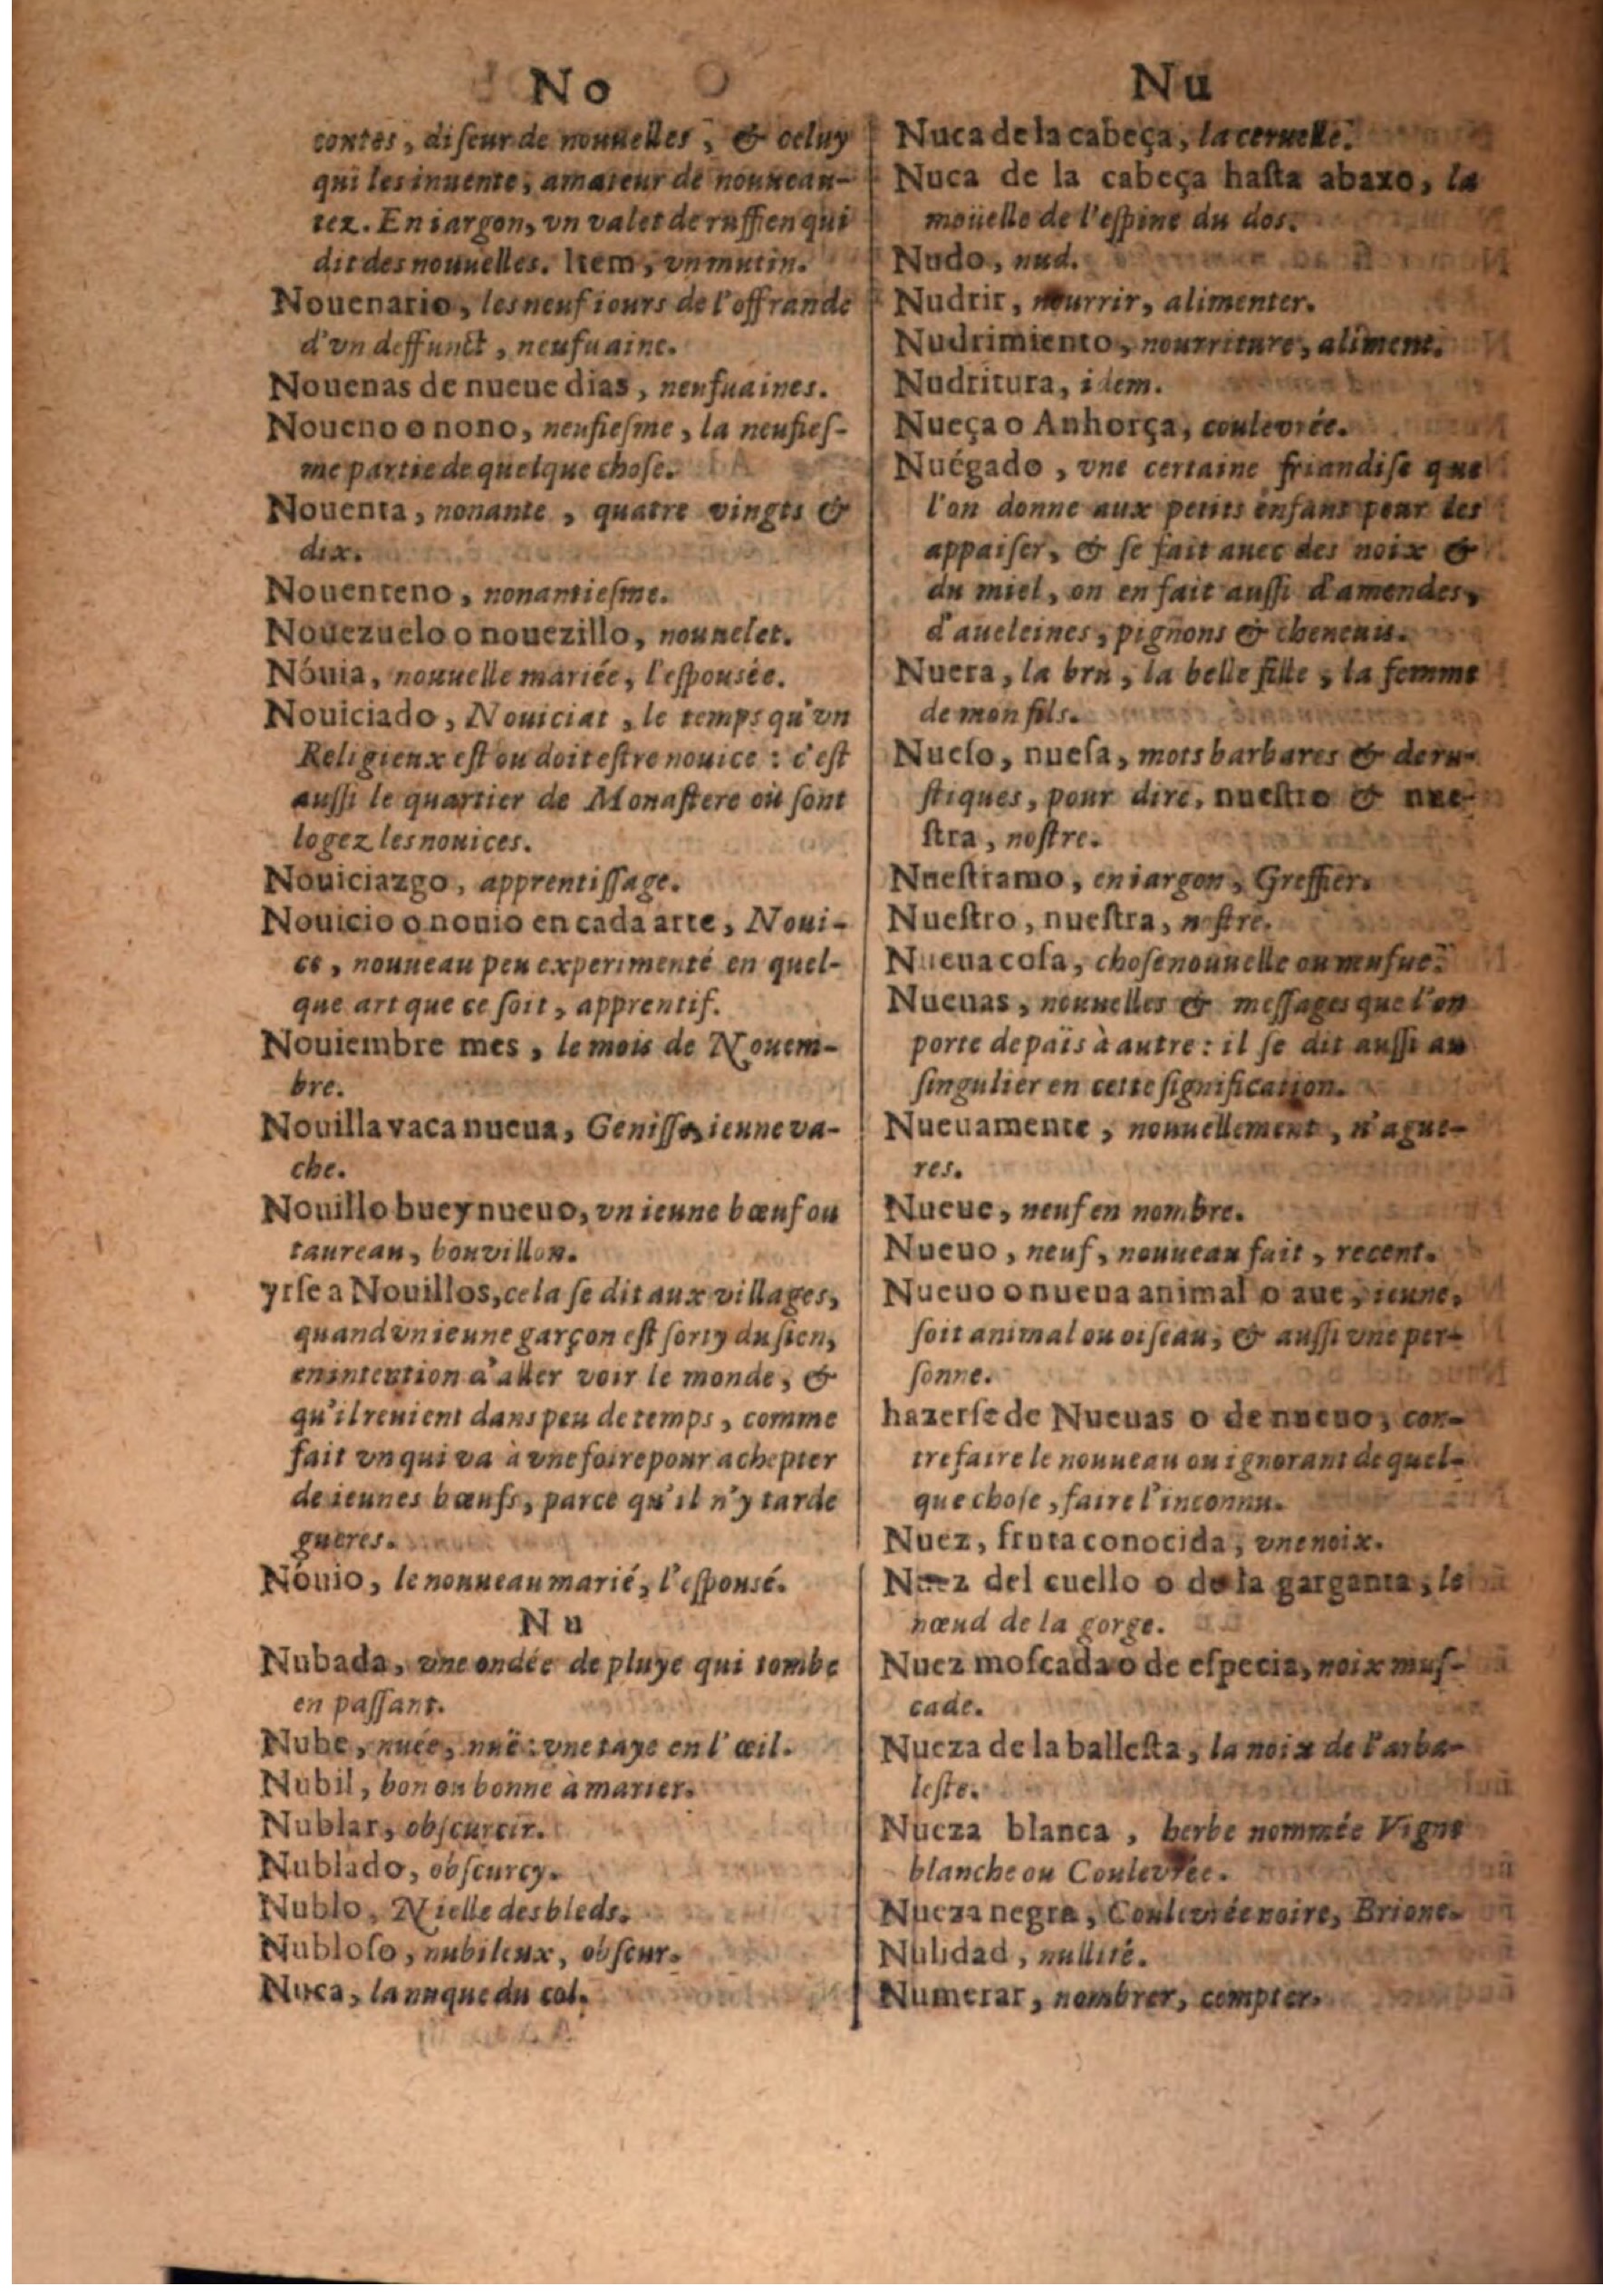 No
contes, diſeur de nouuelles, & celuy
qui les inuente, amateur de nouueau-
tez. En iargon, vn valet de ruffien qui
dit des nouuelles. Item, vn mutin.
Nouenario, les neuf iours de l'offrande
d'vn deffunct, neufuaine.
Nouenas de nueue dias, neufuaines.
Noueno o nono, neufieſme, la neufieſ-
me partie de quelque choſe.
Nouenta, nonante, quatre vingts &
dix.
Nouenteno, nonantieſme.
Nouezuelo o nouezillo, nouuelet.
Nóuia, nouuelle mariée, l'eſpousée.
Nouiciado, Nouiciat, le temps qu'vn
Religieux eſt ou doit eſtre nouice : c'eſt
auſſi le quartier de Monaſtere où ſont
logez les nouices.
Nouiciazgo, apprentiſſage.
Nouicio o nouio en cada arte, Noui-
ce, nouueau peu experimenté en quel-
que art que ce ſoit, apprentif.
Nouiembre mes, le mois de Nouem-
bre.
Nouilla vaca nueua, Geniſſe, ieune va-
che.
Nouillo buey nueuo, vn ieune bœuf ou
taureau, bouvillon.
yrſe a Nouillos, cela ſe dit aux villages,
quand vn ieune garçon eſt ſorty du ſien,
en intention d'aller voir le monde, &
qu'il reuient dans peu de temps, comme
fait vn qui va à vne foire pour achepter
de ieunes bœufs, parce qu'il n'y tarde
gueres.
Nóuio, le nouueau marié, l'eſpouſé.
Nu
Nubada, vne ondée de pluye qui tombe
en paſſant.
Nube, nuée, nuë : vne taye en l'œil.
Nubil, bon ou bonne à marier.
Nublar, obſcurcir.
Nublado, obſcurcy.
Nublo, Nielle des bleds.
Nubloſo, nubileux, obſcur.
Nuca, la nuque du col.
Nu
Nuca de la cabeça, la ceruelle.
Nuca de la cabeça haſta abaxo, la
moüelle de l'eſpine du dos.
Nudo, nud.
Nudrir, nourrir, alimenter.
Nudrimiento, nourriture, aliment.
Nudritura, idem.
Nueça o Anhorça, coulevrée.
Nuégado, vne certaine friandiſe que
l'on donne aux petits enfans pour les
appaiſer, & ſe fait auec des noix &
du miel, on en fait auſſi d'amendes,
d'aueleines, pignons & cheneuis.
Nuera, la bru, la belle fille, la femme
de mon fils.
Nueſo, nueſa, mots barbares & de ru-
ſtiques, pour dire, nueſtro & nue-
ſtra, noſtre.
Nueſtramo, en iargon, Greffier.
Nueſtro, nueſtra, noſtre.
Nueua coſa, choſe nouuelle ou neufue.
Nueuas, nouuelles & meſſages que l'on
porte de païs à autre : il ſe dit auſſi au
ſingulier en cette ſignification.
Nueuamente, nouuellement, n'ague-
res.
Nueue, neuf en nombre.
Nueuo, neuf, nouueau fait, recent.
Nueuo o nueua animal o aue, ieune,
ſoit animal ou oiſeau, & auſſi vne per-
ſonne.
hazerſe de Nueuas o de nueuo, con-
trefaire le nouueau ou ignorant de quel-
que choſe, faire l'inconnu.
Nuez, fruta conocida, vne noix.
Nuez del cuello o de la garganta, le
nœud de la gorge.
Nuez moſcada o de eſpecia, noix muſ-
cade.
Nueza de la balleſta, la noix de l'arba-
leſte.
Nueza blanca, herbe nommée Vigne
blanche ou Coulevrée.
Nueza negra, Coulevrée noire, Brione.
Nulidad, nullité.
Numerar, nombrer, compter.